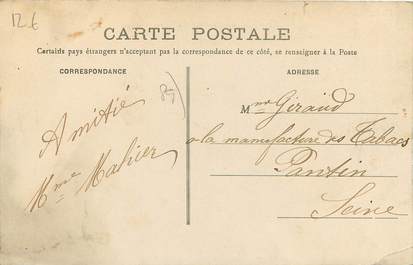 12.6
CARTE POSTALE
Certains pays étrangers n'acceptant pas la correspondance de ce côté, se renseigner à la Poste
CORRESPONDANCE
ADRESSE
Amitié
Mme
Mme Giraud
a la manufacture des Tabacs
Pantin
Seine